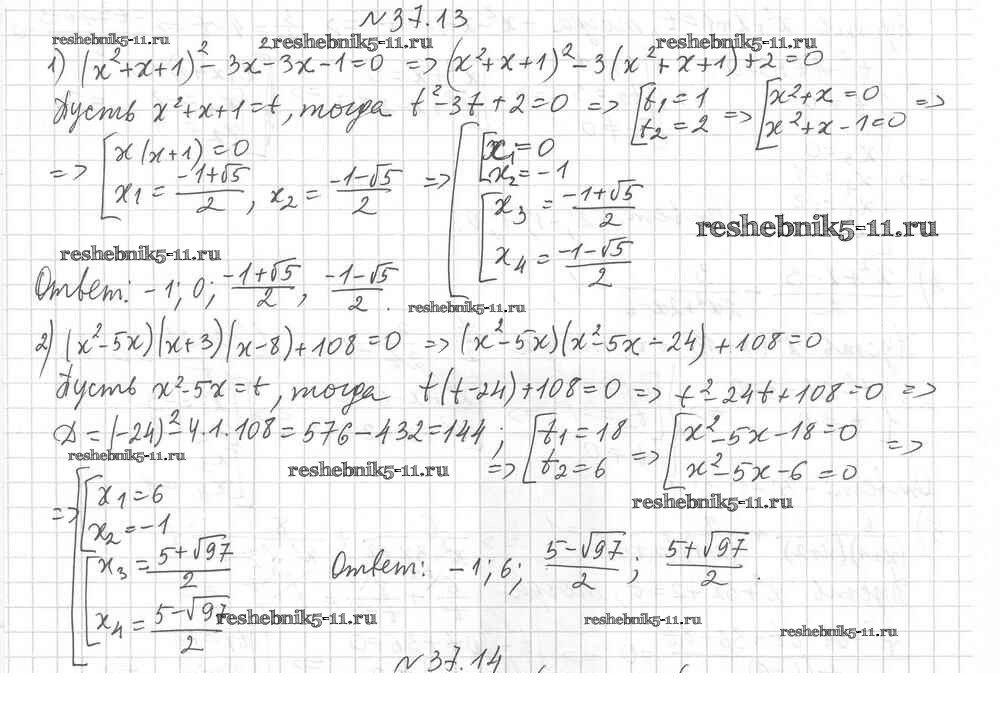 №37.13
reshebnik5-11.ru 2reshebnik5-11.ru reshebnik5-11.ru
1) (x²+x+1)² - 3x - 3x - 1 = 0 => (x²+x+1)² - 3(x²+x+1) + 2 = 0
Пусть x²+x+1=t, тогда t²-3t+2=0 => [t₁=1 t₂=2 => [x²+x=0 x²+x-1=0 =>
=> [x(x+1)=0 x₁ = (-1+√5)/2, x₂ = (-1-√5)/2 => [x₁=0 x₂=-1 x₃ = (-1+√5)/2 x₄ = (-1-√5)/2
reshebnik5-11.ru
reshebnik5-11.ru
Ответ: -1; 0; (-1+√5)/2, (-1-√5)/2.
reshebnik5-11.ru
2) (x²-5x)(x+3)(x-8)+108=0 => (x²-5x)(x²-5x-24)+108=0
Пусть x²-5x=t, тогда t(t-24)+108=0 => t²-24t+108=0 =>
D=(-24)²-4·1·108=576-432=144; => [t₁=18 t₂=6 => [x²-5x-18=0 x²-5x-6=0 =>
reshebnik5-11.ru reshebnik5-11.ru
reshebnik5-11.ru
=> [x₁=6 x₂=-1 x₃ = (5+√97)/2 x₄ = (5-√97)/2
Ответ: -1; 6; (5-√97)/2; (5+√97)/2.
reshebnik5-11.ru reshebnik5-11.ru
reshebnik5-11.ru
№37.14